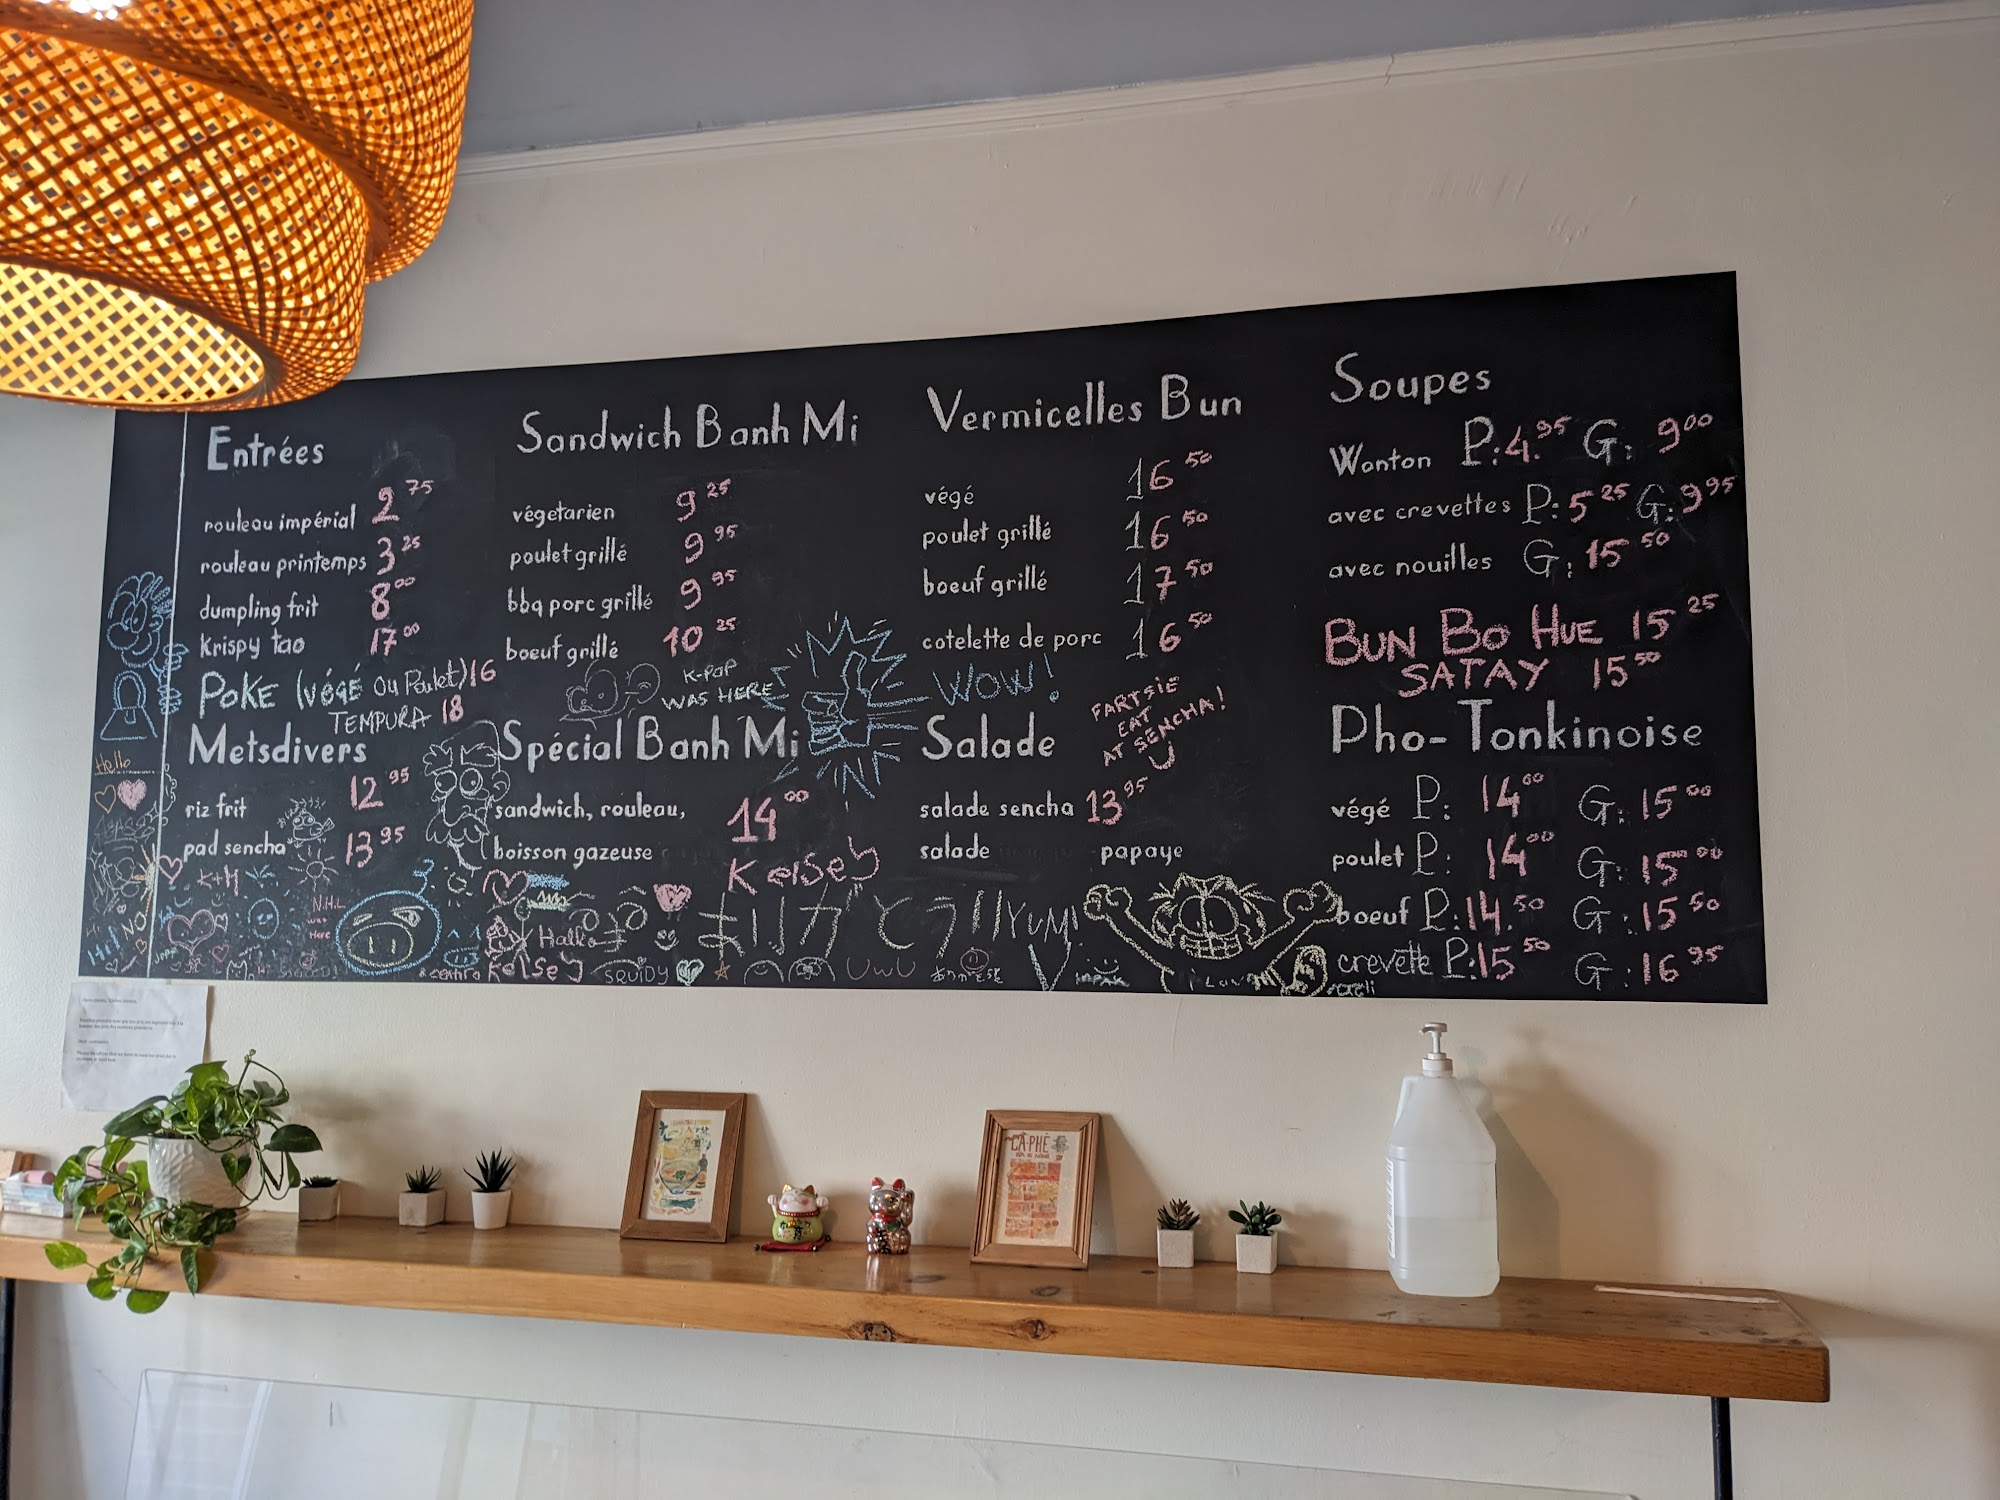 Entrées
rouleau impérial 2 75
rouleau printemps 3 25
dumpling frit 8 00
Krispy tao 17 00
POKE (VÉGÉ OU Poulet) 16
TEMPURA 18
Metsdivers
riz frit 12 95
pad sencha 13 95
Sandwich Banh Mi
végetarien 9 25
poulet grillé 9 95
bbq porc grillé 9 95
boeuf grillé 10 25
K-POP
WAS HERE
Spécial Banh Mi
sandwich, rouleau, 14 00
boisson gazeuse
Vermicelles Bun
végé 16 50
poulet grillé 16 50
boeuf grillé 17 50
cotelette de porc 16 50
WOW!
FARTSIE
EAT
AT SENCHA!
Salade
salade sencha 13 95
salade papaye
Soupes
Wonton P: 4. 95 G: 9 00
avec crevettes P: 5 25 G: 9 95
avec nouilles G: 15 50
BUN BO HUE 15 25
SATAY 15 50
Pho-Tonkinoise
végé P: 14 00 G: 15 00
poulet P: 14 00 G: 15 00
boeuf P: 14. 50 G: 15 50
crevette P: 15 50 G: 16 95
Hello
K+M
NO
Hi!
N.H.L
was
Here
Kelsey
YUM!
Kelsey
SQUIDY
UwU
CÀ-PHÊ